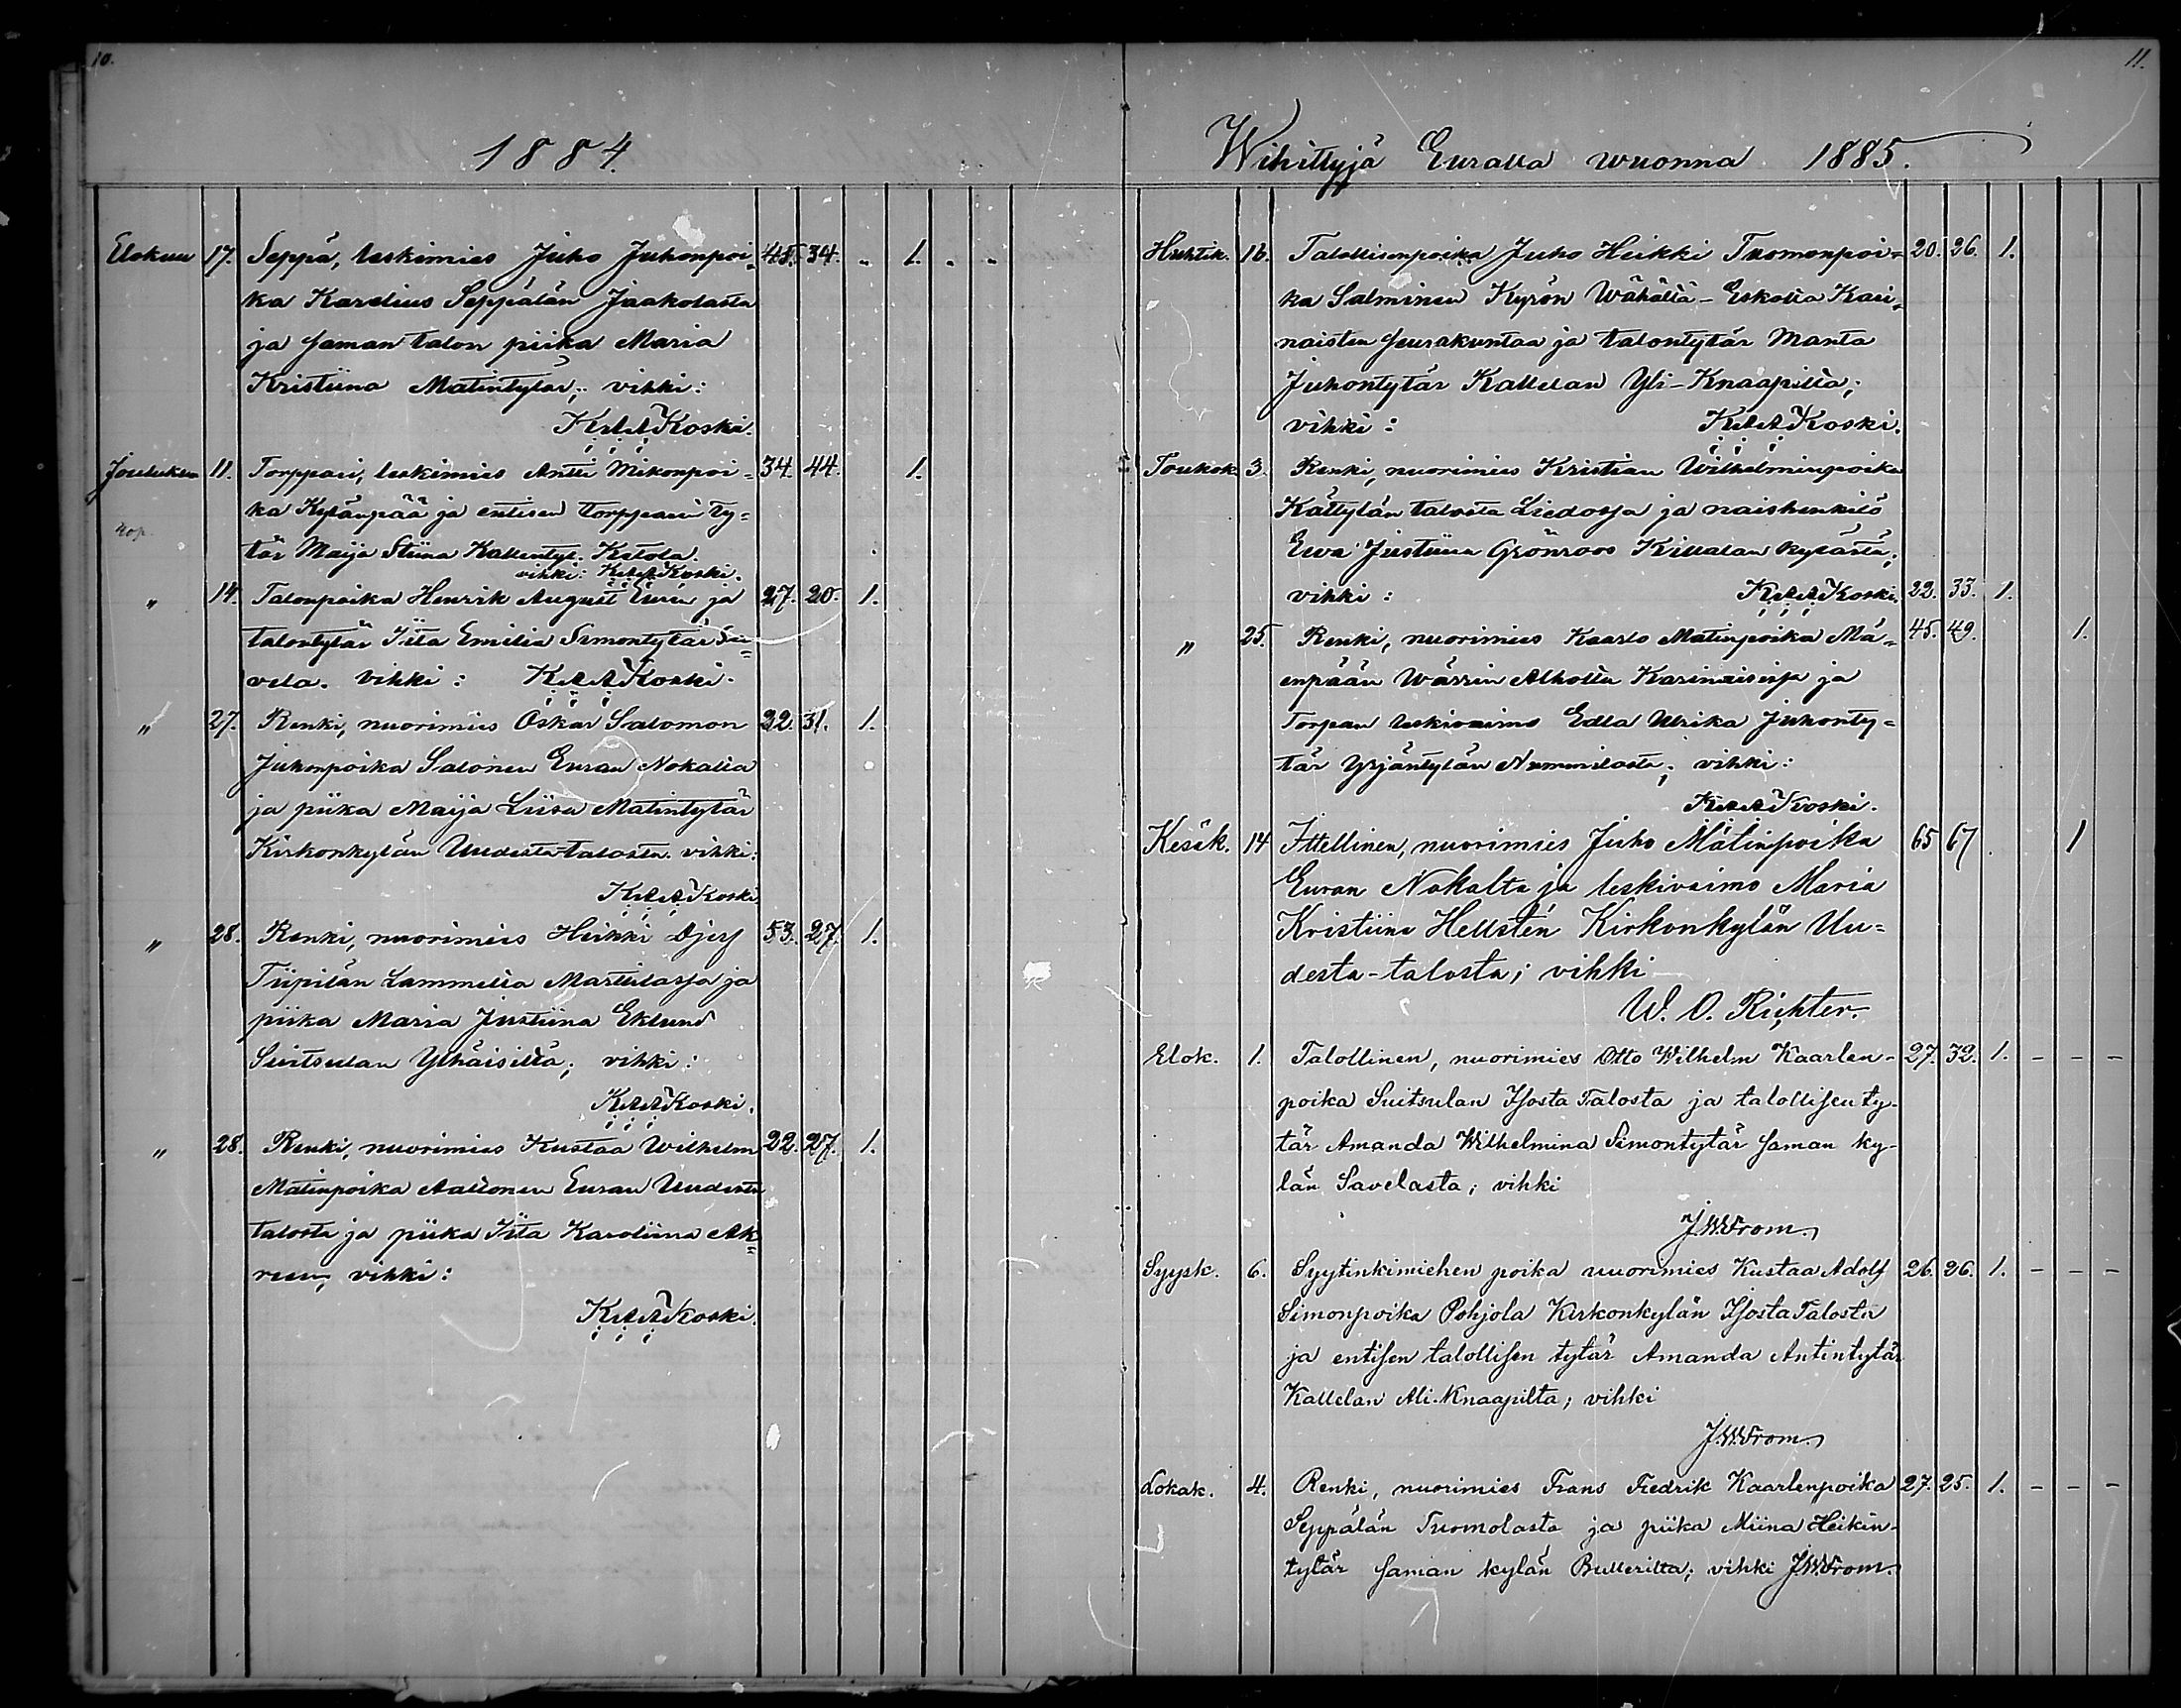 10.
1884.
Elokuu 17. Seppä, leskimies Juho Juhonpoi- 45. 34. - 1. - -
ka Karelius Seppälän Jaakolasta
ja saman talon piika Maria
Kristiina Matintytär; vihki:
K. A. A. Koski.
Joulukuu 11. Torppari, leskimies Antti Mikonpoi= 34. 44. 1.
ka Kylänpää ja entisen torpparin ty=
tär Maija Stiina Kallentyt. Ketola.
vihki: K. A. A. Koski.
" 14. Talonpoika Henrik August ja 27. 20. 1.
talontytär Iita Emilia Simontytär Sa=
vela. vihki: K. A. A. Koski.
" 27. Renki, nuorimies Oskar Salomon 22. 31. 1.
Juhonpoika Salonen Euran Nokalta
ja piika Maija Liisa Matintytär
Kirkonkylän Uudesta-talosta. vihki:
K. A. A. Koski
" 28. Renki, nuorimies Heikki 53. 27. 1.
Tiipilän Lammella Marttilassa ja
piika Maria Justiina Eklund
Suitsulan Ylhäisiltä; vihki:
K. A. A. Koski.
" 28. Renki, nuorimies Kustaa Wilhelm 22. 27. 1.
Matinpoika Aaltonen Euran Uudesta
talosta ja piika Iita Karoliina Ak=
ren; vihki:
K. A. A. Koski.
11.
Wihittyjä Euralla wuonna 1885.
Huhtik. 16. Talollisenpoika Juho Heikki Tuomonpoi= 20. 36. 1.
ka Salminen Kyrön Wähältä-Eskolta Kari=
naisten seurakuntaa ja talontytär Manta
Juhontytär Kallelan Yli-Knaapilta;
vihki: K. A. A. Koski.
Toukok. 3. Renki, nuorimies Kristian Wilhelminpoika
Kättylän talosta Liedossa ja naishenkilö
Ewa Justiina Grönroos Kiukalan kylästä;
vihki: K. A. A. Koski. 22. 33. 1.
" 25. Renki, nuorimies Kaarlo Matinpoika Mä= 45. 49. 1.
enpään Alholta Karinaisissa ja
Torpan leskivaimo Edla Ulrika Juhonty=
tär Yrjäntylän Nummilasta; vihki:
K. A. A. Koski.
Kesäk. 14 Ittellinen, nuorimies Juho Matinpoika 65 67 1
Euran Nokalta ja leskivaimo Maria
Kristiina Hellstén Kirkonkylän Uu=
desta-talosta; vihki
W. O. Richter.
Elok. 1. Talollinen, nuorimies Otto Wilhelm Kaarlen- 27. 32. 1. - - -
poika Suitsulan Isosta Talosta ja talollisen ty-
tär Amanda Wilhelmina Simontytär saman ky-
län Savelasta; vihki
J. W. From.
Syysk. 6. Syytinkimiehen poika nuorimies Kustaa Adolf 26. 26. 1. - - -
Simonpoika Pohjola Kirkonkylän Isosta Talosta
ja entisen talollisen tytär Amanda Antintytär
Kallelan Ali-Knaapilta; vihki
J. W. From.
Lokak. 4. Renki, nuorimies Frans Fredrik Kaarlenpoika 27. 25. 1. - - -
Seppälän Tuomolasta ja piika Miina Heikin-
tytär saman kylän Bullerilta; vihki J. W. From.